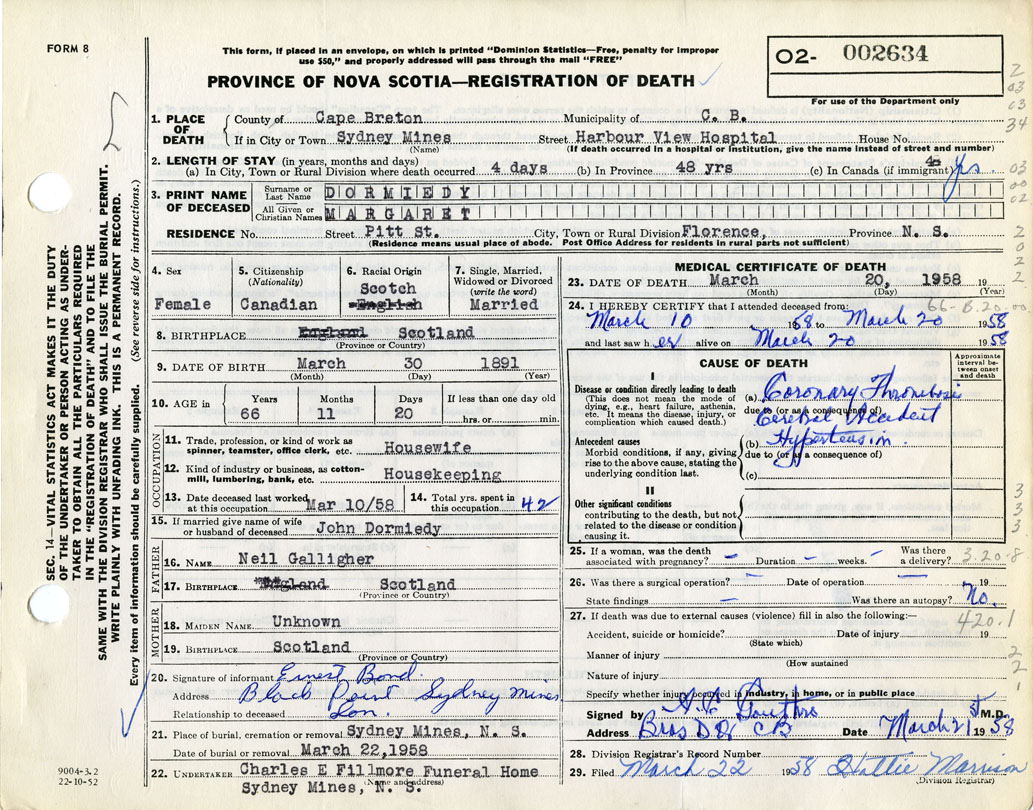 FORM 8
This form, if placed in an envelope, on which is printed "Dominion Statistics—Free, penalty for improper
use $50," and properly addressed will pass through the mail "FREE"
PROVINCE OF NOVA SCOTIA—REGISTRATION OF DEATH
02- 002634
For use of the Department only
SEC. 14—VITAL STATISTICS ACT MAKES IT THE DUTY
OF THE UNDERTAKER OR PERSON ACTING AS UNDER-
TAKER TO OBTAIN ALL THE PARTICULARS REQUIRED
IN THE "REGISTRATION OF DEATH" AND TO FILE THE
SAME WITH THE DIVISION REGISTRAR WHO SHALL ISSUE THE BURIAL PERMIT.
WRITE PLAINLY WITH UNFADING INK. THIS IS A PERMANENT RECORD.
Every item of information should be carefully supplied. (See reverse side for instructions.)
1. PLACE OF DEATH County of Cape Breton Municipality of C. B.
If in City or Town Sydney Mines Street Harbour View Hospital House No.
(Name) (If death occurred in a hospital or institution, give the name instead of street and number)
2. LENGTH OF STAY (in years, months and days)
(a) In City, Town or Rural Division where death occurred 4 days (b) In Province 48 yrs (c) In Canada (if immigrant) yrs.
3. PRINT NAME OF DECEASED Surname or Last Name DORMIEDY
All Given or Christian Names MARGARET
RESIDENCE No. Street Pitt St. City, Town or Rural Division Florence, Province N. S.
(Residence means usual place of abode. Post Office Address for residents in rural parts not sufficient)
4. Sex 5. Citizenship (Nationality) 6. Racial Origin 7. Single, Married, Widowed or Divorced (write the word)
Scotch
Female Canadian English Married
8. BIRTHPLACE England Scotland
(Province or Country)
9. DATE OF BIRTH March 30 1891
(Month) (Day) (Year)
10. AGE in Years Months Days If less than one day old
66 11 20 hrs. or min.
OCCUPATION
11. Trade, profession, or kind of work as
spinner, teamster, office clerk, etc. Housewife
12. Kind of industry or business, as cotton-
mill, lumbering, bank, etc. Housekeeping
13. Date deceased last worked at this occupation Mar 10/58 14. Total yrs. spent in this occupation 42
15. If married give name of wife
or husband of deceased John Dormiedy
FATHER
16. NAME Neil Galligher
17. BIRTHPLACE England Scotland
(Province or Country)
MOTHER
18. MAIDEN NAME Unknown
19. BIRTHPLACE Scotland
(Province or Country)
20. Signature of informant Ernest Bond.
Address Black Point Sydney Mines
Relationship to deceased Son.
21. Place of burial, cremation or removal Sydney Mines, N. S.
Date of burial or removal March 22,1958
22. UNDERTAKER Charles E Fillmore Funeral Home
(Name and address)
Sydney Mines, N. S.
9004-3.2
22-10-52
MEDICAL CERTIFICATE OF DEATH
23. DATE OF DEATH March 20, 1958 19
(Month) (Day) (Year)
24. I HEREBY CERTIFY that I attended deceased from:
66-B.20
March 10 1958 to March 20 1958
and last saw her alive on March 20 1958
CAUSE OF DEATH
Approximate interval between onset and death
I
Disease or condition directly leading to death
(This does not mean the mode of dying, e.g., heart failure, asthenia, etc. It means the disease, injury, or complication which caused death.)
(a) Coronary Thrombosis
due to (or as a consequence of)
Cerebral Accident
Antecedent causes
Morbid conditions, if any, giving rise to the above cause, stating the underlying condition last.
(b) Hypertension.
due to (or as a consequence of)
(c)
II
Other significant conditions
contributing to the death, but not related to the disease or condition causing it.
25. If a woman, was the death associated with pregnancy? – Duration – weeks. – Was there a delivery? 3.20.8
26. Was there a surgical operation? – Date of operation — 19
State findings — Was there an autopsy? No.
27. If death was due to external causes (violence) fill in also the following:— 420.1
Accident, suicide or homicide? Date of injury 19
(State which)
Manner of injury
(How sustained
Nature of injury
Specify whether injury occurred in industry, in home, or in public place
Signed by M.D.
Address Bras D'Or CB Date March 21 1958
28. Division Registrar's Record Number
29. Filed March 22 1958 Hattie Marrison
(Division Registrar)